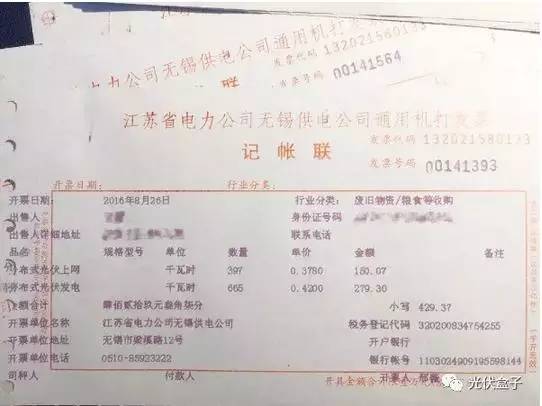 电力公司无锡供电公司通用机打发
发票代码 1320215601
发票号码 00141564
联
江苏省电力公司无锡供电公司通用机打发票
发票代码 132021580133
记帐联
发票号码 00141393
开票日期： 行业分类：
开票日期： 2016年8月26日 行业分类： 废旧物资/粮食等收购
出售人 身份证号码
出售人详细地址 联系电话
品名 规格型号 单位 数量 单价 金额 备注
分布式光伏上网 千瓦时 397 0.3780 150.07
分布式光伏发电 千瓦时 665 0.4200 279.30
金额合计 肆佰贰拾玖元叁角柒分 小写 429.37
开票单位名称 江苏省电力公司无锡供电公司 税务登记代码 320200834754255
开票单位地址 无锡市梁溪路12号 开户银行
开票单位电话 0510-85923222 银行帐号 1103024909195598144
司秤人 付款人 开具金额合计
手开无效
光伏盒子